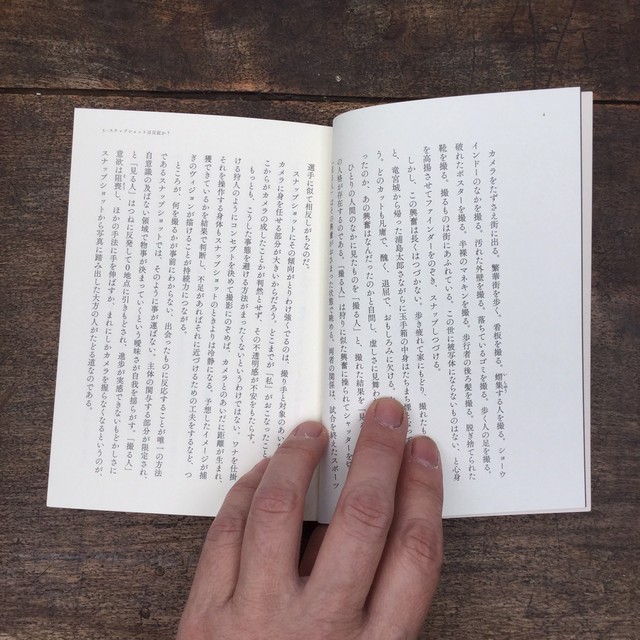 カメラをたずさえ街に出る。繁華街を歩く、看板を撮る、蝟集する人を撮る、ショーウ
インドーのなかを撮る、汚れた外壁を撮る、落ちているゴミを撮る、歩く人の足を撮る、
破れたポスターを撮る、半裸のマネキンを撮る、歩行者の後ろ髪を撮る、脱ぎ捨てられた
靴を撮る。撮るものは街にあふれている。この世に被写体にならないものはない、と心身
を高揚させてファインダーをのぞき、スナップしつづける。
しかし、この興奮は長くはつづかない。歩き疲れて家にもどり、撮れたも
と、竜宮城から帰った浦島太郎さながらに玉手箱の中身はたちまち煙
う。どのカットも凡庸で、醜く、退屈で、おもしろみに欠ける。
ったのか、あの興奮はなんだったのかと自問し、虚しさに見舞わ
ひとりの人間のなかに見たものを「撮る人」と、撮れた結果を
の人格が存在するのである。「撮る人」は狩りに似た興奮に操られてシャッターを
を眺める。両者の関係は、試合を終えたスポーツ
1・スナップショットは日記か?
選手に似て相反しがちなのだ。
スナップショットにその傾向がとりわけ強くでるのは、撮り手と対象のあい
カメラに身を任せる部分が大きいからだろう。どこまでが「私」がおこなったこと
こからがカメラの成したことかが判然とせず、その不透明感が不安をもたらす。
もっとも、こうした事態を避ける方法がまったくないというわけではない。ワナを仕掛
ける狩人のようにコンセプトを決めて撮影にのぞめば、カメラとのあいだに距離が生まれ、
それを操作する身体もスナップショットのときよりは冷静になる。予想したイメージが捕
獲できているかを結果で判断し、不足があればそれに近づけるための工夫をするなど、つ
ぎのヴィジョンが描けることが持続力につながる。
ところが、何を撮るかが事前にわからない、出会ったものに反応することが唯一の方法
であるスナップショットでは、そのように事が運ばない。主体の関与する部分が限定され、
自意識の及ばない領域で物事が決まっていくという曖昧さが自我を揺らがす。「撮る人」
と「見る人」はつねに反発して0地点に引きもどされ、進歩が実感できないもどかしさに
意欲は阻喪し、ほかの手法に手を伸ばすか、まれにしかカメラを撮らなくなるというのが、
スナップショットから写真に踏み出した大方の人がたどる道なのである。